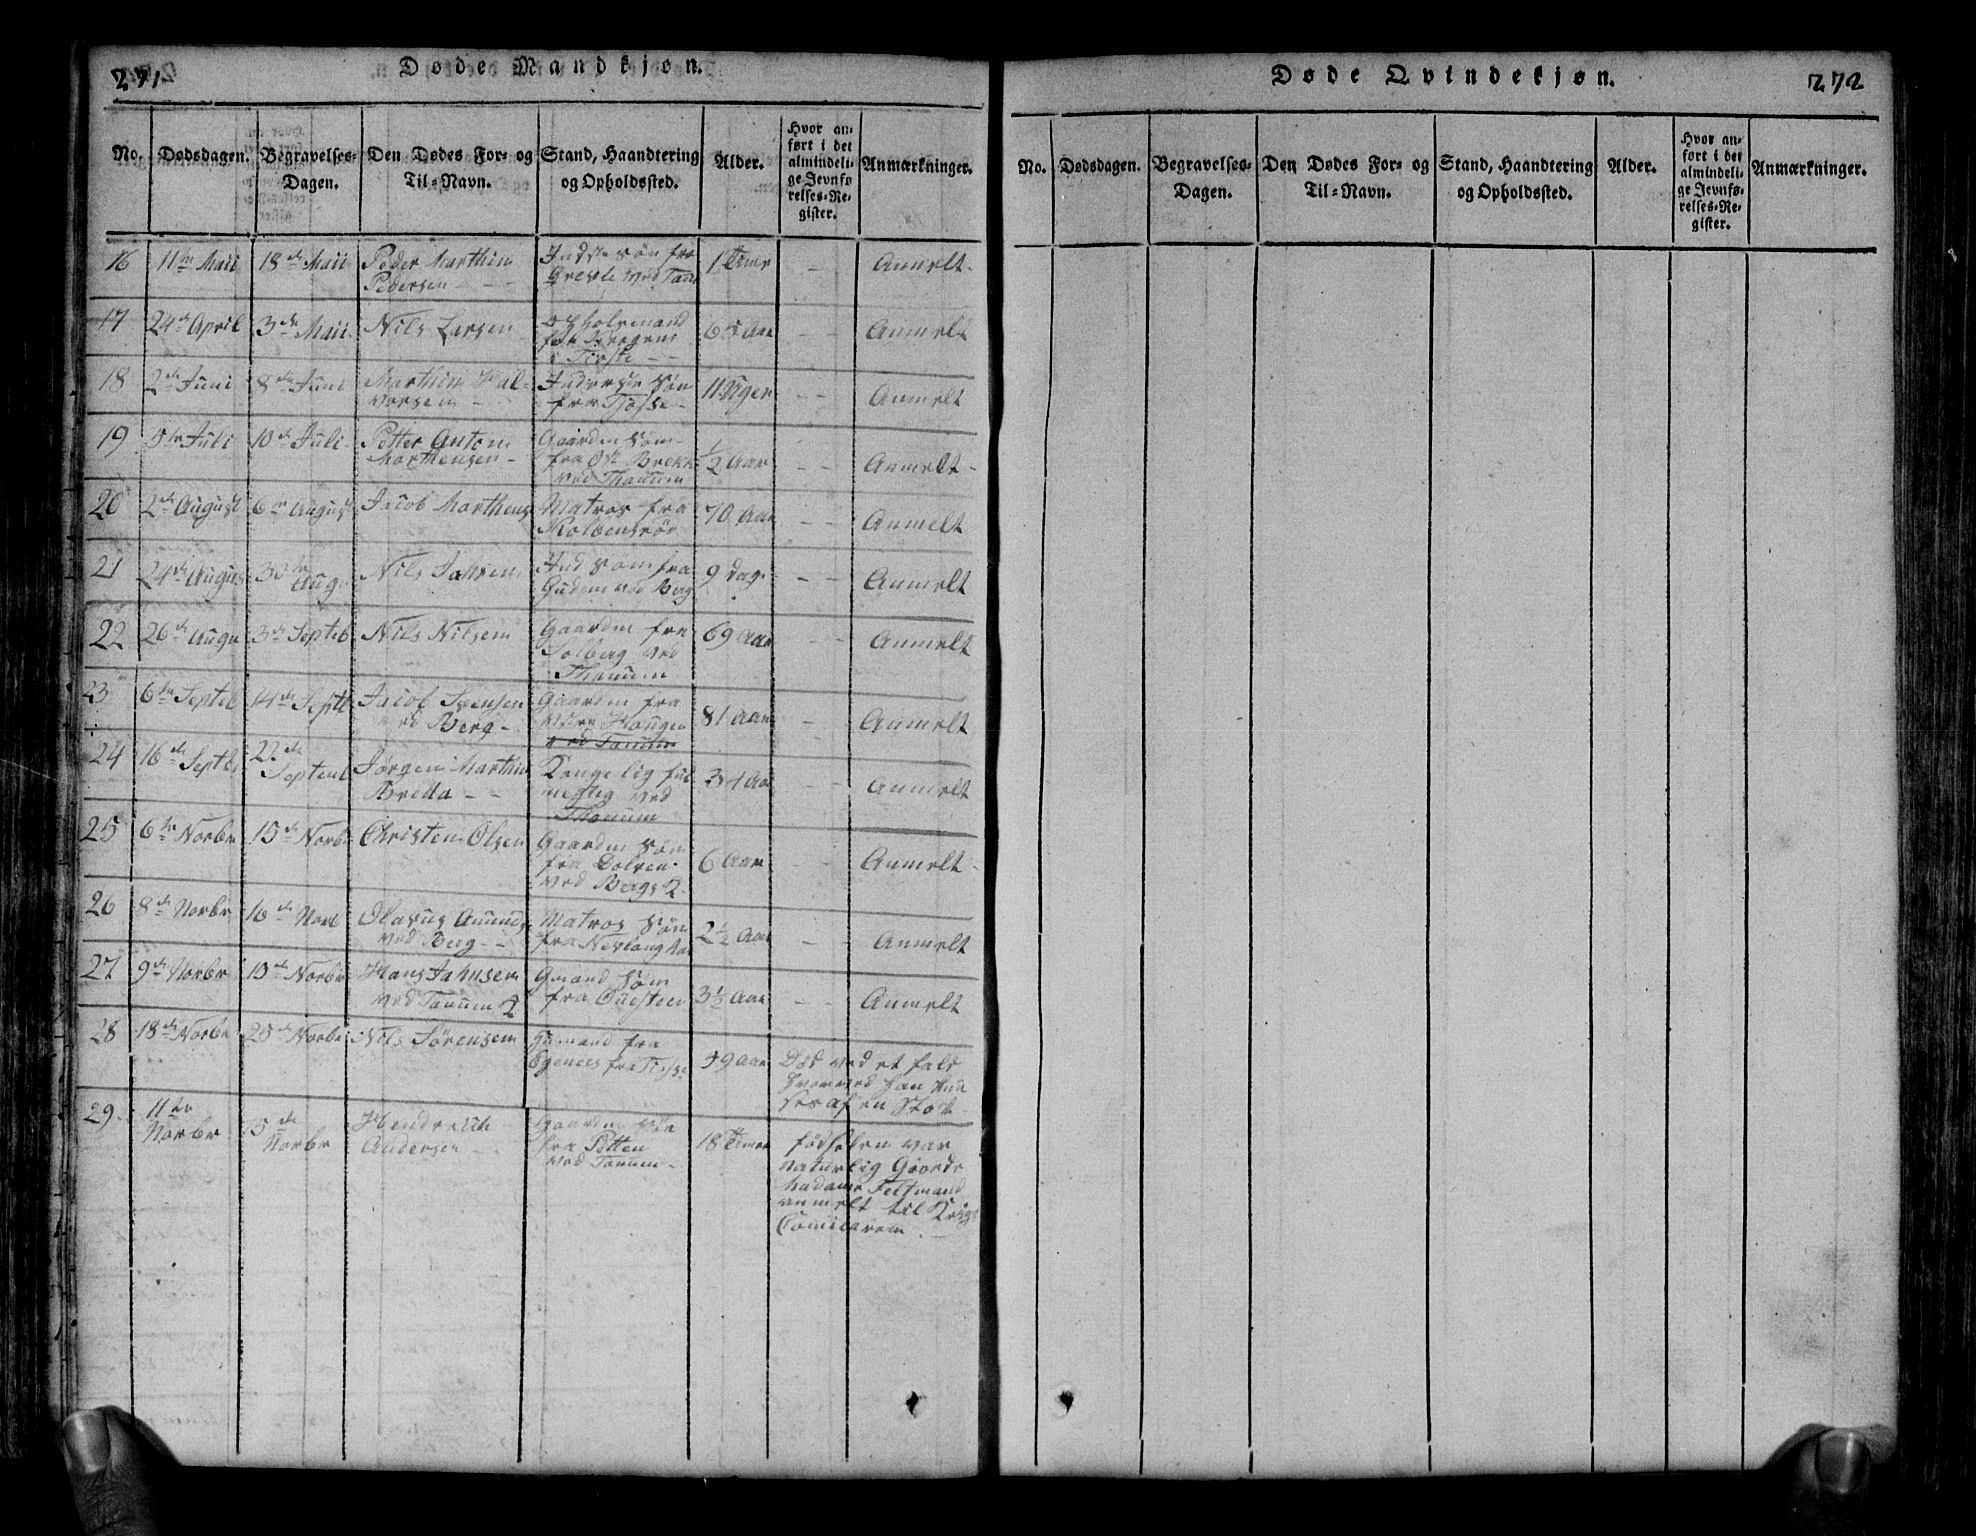 271.
Døde Mandkjøn.
No.
Dødsdagen.
Begravelses-
Dagen.
Den Dødes For- og
Til-Navn.
Stand, Haandtering
og Opholdssted.
Alder.
Hvor an-
ført i det
almindeli-
ge Jevnfø
relses-Re-
gister.
Anmærkninger.
16
11te Maii
18de Maii
Peder Marthin
Pedersen - - -
søn fra
ved Tanu
1 Time
- -
Anmelt-
17
24de April
3de Maii
Nils Larsen
65 Aar
- -
Anmelt
18
2de Juni
8de Juni
Marthin Hal-
vorsen - -
Inderste Søn
fra Tjøsse-
11 Uger
- -
Anmelt
19
5te Juli
10de Juli
Petter Anton
Marthensen -
Gaardm søn
fra Øst Brekk
ved Thanum
1/2 Aar
- -
Anmelt -
20
2de August
6te August
Jacob Marthens
Matros fra
Kolbensrød
70 Aar
- -
Anmelt
21
24de Augus
30te
Aug.
Nils Jahsen
Ind søn fra
Gudem ved Berg
9 dag
- -
Anmelt
22
26de Augu
3de Septeb
Nils Nilsen
Gaardm fra
Solberg ved
Thanum
69 Aar
- -
Anmelt
23
6te Septeb
14de Septb
Jacob Svensen
ved Berg -
Gaardm fra
Haugen
ved Tanum
81 Aar
-
Anmelt
24
16de Septb
22de
Septemb
Jørgen Marthin
Breda - -
Kongelig ful
megtig ved
Thanum
34 Aar
- -
Anmelt
25
6te Norbr
15de Norb
Christen Olsen
Gaardm søn
fra Dolven
ved Bergs K
6 Aar
- -
Anmelt -
26
8de Norbr
16de Norb
Olavus Amunds
ved Berg - -
Matros Søn
fra Nevlanghav
2 1/2 Aar
- -
Anmelt
27
9de Norbr
15de Norbr
Hans Jahnsen
ved Tanum K
Gmand søn
fra Ouesteen
3 1/2 Aar
- -
Anmelt
28
18de Norbr
25de Norbr
Nils Sørensen
Gumand fra
Egenes fra
59 Aar
Død ved et fald
hvorved han
ses af en Stok
29.
11te
Norbr
5de
Norbr
Hendrich
Andersen - -
Gaardm
fra Potten
ved Tanum -
18 Timer
fødselen var
naturlig Giorde
Madame Feltmand
anmelt til
272
Døde Qvindekjøn.
No.
Dødsdagen.
Begravelses-
Dagen.
Den Dødes For- og
Til-Navn.
Stand, Haandtering
og Opholdssted.
Alder.
Hvor an-
ført i det
almindeli-
ge Jevnfø-
relses-Re-
gister.
Anmærkninger.